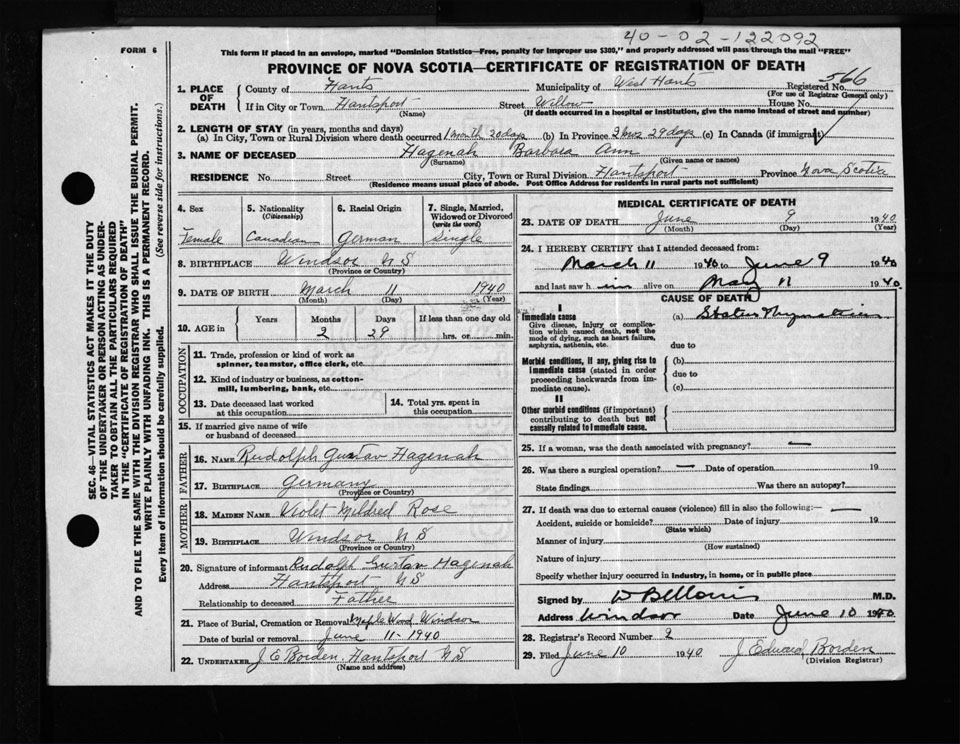 40-02-122092
FORM 6
This form if placed in an envelope, marked "Dominion Statistics—Free, penalty for improper use $300," and properly addressed will pass through the mail "FREE"
PROVINCE OF NOVA SCOTIA—CERTIFICATE OF REGISTRATION OF DEATH
SEC. 46—VITAL STATISTICS ACT MAKES IT THE DUTY
OF THE UNDERTAKER OR PERSON ACTING AS UNDER-
TAKER TO OBTAIN ALL THE PARTICULARS REQUIRED
IN THE "CERTIFICATE OF REGISTRATION OF DEATH"
AND TO FILE THE SAME WITH THE DIVISION REGISTRAR WHO SHALL ISSUE THE BURIAL PERMIT.
WRITE PLAINLY WITH UNFADING INK. THIS IS A PERMANENT RECORD.
Every item of Information should be carefully supplied. (See reverse side for instructions.)
1. PLACE OF DEATH
County of Hants Municipality of West Hants Registered No. 566
(For use of Registrar General only)
If in City or Town Hantsport Street Willow House No.
(Name) (If death occurred in a hospital or institution, give the name instead of street and number)
2. LENGTH OF STAY (in years, months and days)
(a) In City, Town or Rural Division where death occurred 1 month 20 days (b) In Province 2 mos 29 days (c) In Canada (if immigrant)
3. NAME OF DECEASED Hagenah Barbara Ann
(Surname) (Given name or names)
RESIDENCE No. Street City, Town or Rural Division Hantsport Province Nova Scotia
(Residence means usual place of abode. Post Office Address for residents in rural parts not sufficient)
4. Sex
Female
5. Nationality
(Citizenship)
Canadian
6. Racial Origin
German
7. Single, Married,
Widowed or Divorced
(write the word)
Single
8. BIRTHPLACE Windsor N S
(Province or Country)
9. DATE OF BIRTH March 11 1940
(Month) (Day) (Year)
10. AGE in Years Months Days If less than one day old
2 29 hrs. or min.
OCCUPATION
11. Trade, profession or kind of work as
spinner, teamster, office clerk, etc.
12. Kind of industry or business, as cotton-
mill, lumbering, bank, etc.
13. Date deceased last worked
at this occupation
14. Total yrs. spent in
this occupation
15. If married give name of wife
or husband of deceased
FATHER
16. NAME Rudolph Gustav Hagenah
17. BIRTHPLACE Germany
(Province or Country)
MOTHER
18. MAIDEN NAME Violet Mildred Rose
19. BIRTHPLACE Windsor N S
(Province or Country)
20. Signature of informant Rudolph Gustav Hagenah
Address Hantsport N S
Relationship to deceased Father
21. Place of Burial, Cremation or Removal Maple Wood, Windsor
Date of burial or removal June 11-1940
22. UNDERTAKER J E Borden Hantsport N S
(Name and address)
MEDICAL CERTIFICATE OF DEATH
23. DATE OF DEATH June 9 1940
(Month) (Day) (Year)
24. I HEREBY CERTIFY that I attended deceased from:
March 11 1940 to June 9 1940
and last saw h alive on May 11 1940
CAUSE OF DEATH
I
Immediate cause
Give disease, injury or complica-
tion which caused death, not the
mode of dying, such as heart failure,
asphyxia, asthenia, etc.
(a) Status
due to
Morbid conditions, if any, giving rise to
immediate cause (stated in order
proceeding backwards from im-
mediate cause).
(b)
due to
(c)
II
Other morbid conditions (if important)
contributing to death but not
causally related to immediate cause.
25. If a woman, was the death associated with pregnancy? —
26. Was there a surgical operation? — Date of operation 19
State findings Was there an autopsy?
27. If death was due to external causes (violence) fill in also the following:— —
Accident, suicide or homicide? Date of injury 19
(State which)
Manner of injury
(How sustained)
Nature of injury
Specify whether injury occurred in industry, in home, or in public place
Signed by M.D.
Address Windsor Date June 10 1940
28. Registrar's Record Number 2
29. Filed June 10 1940 J Edward Borden
(Division Registrar)